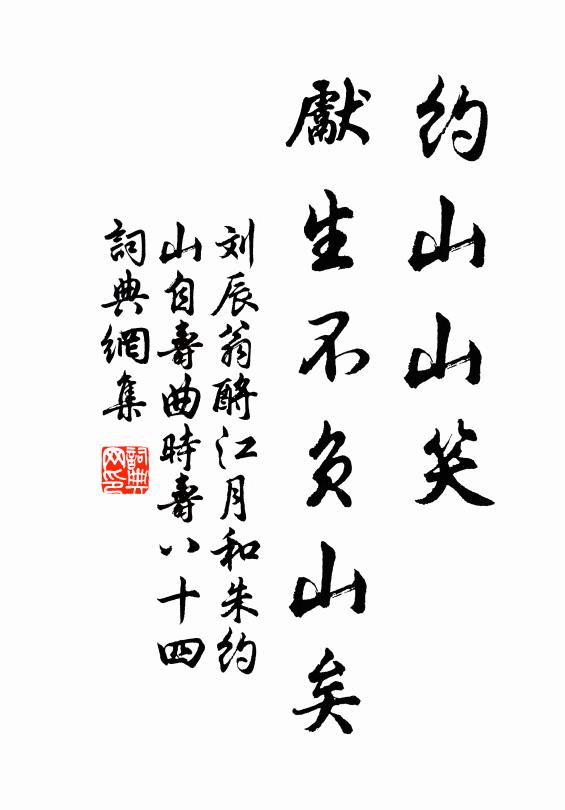 约山山笑
獻生不负山矣
刘辰翁酹江月和朱约
山自壽曲時壽八十四
詞典網集
詞典网印